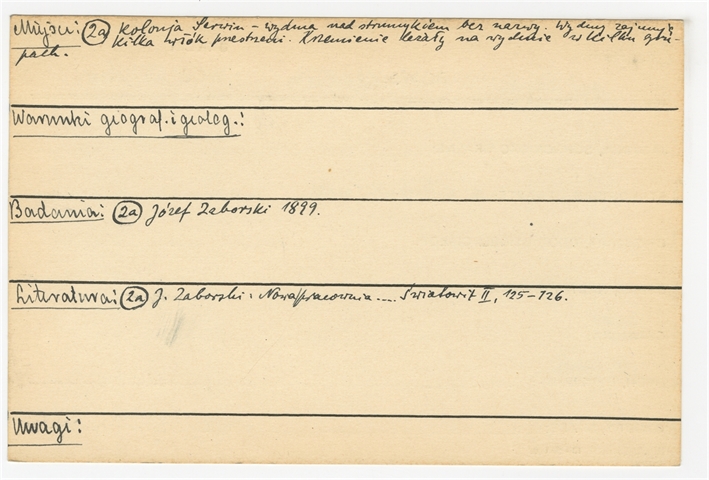 Miejsce: (2a) Kolonja Serwin – wydma nad strumykiem bez nazwy. Wydmy zajmują
kilka włók przestrzeni. Krzemienie leżały na wydmie w kilku gru-
pach.
Warunki geograf. i geolog.:
Badania: (2a) Józef Zaborski 1899.
Literatura: (2a) J. Zaborski: Nowa pracownia .... Światowit II, 125–126.
Uwagi: